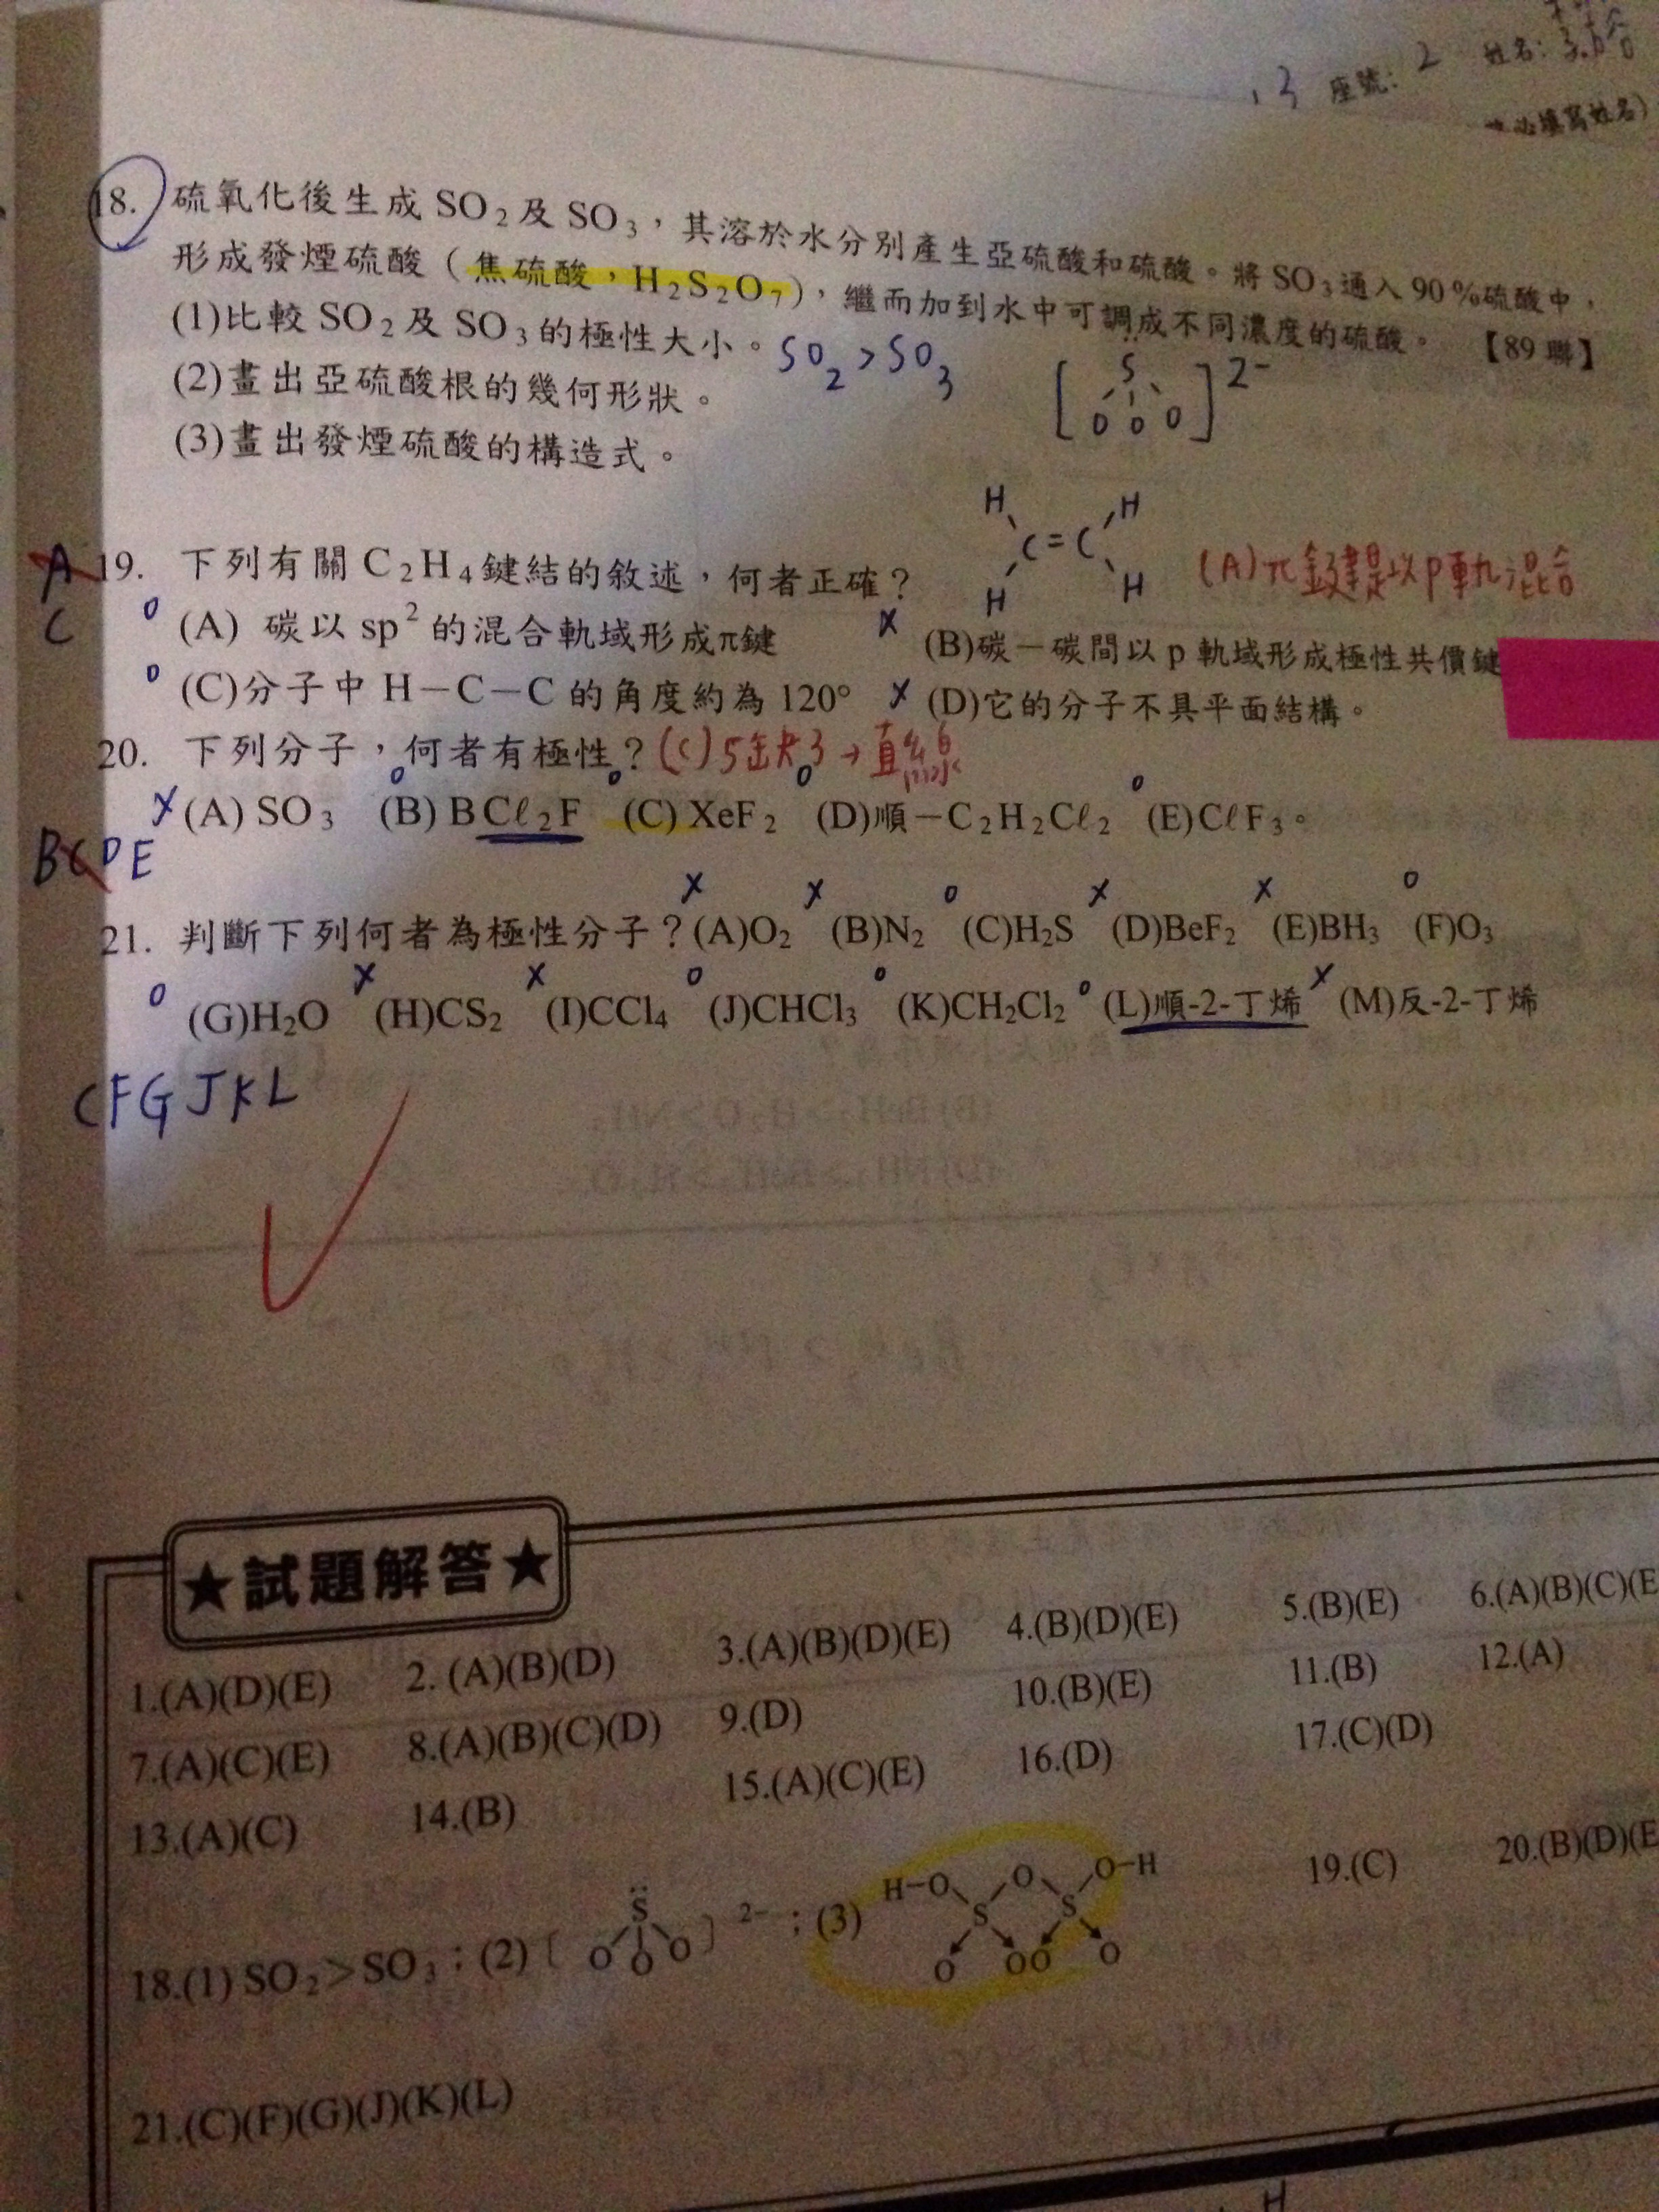 13 座號: 2 姓名:
必填寫姓名)
18. 硫氧化後生成 SO2 及 SO3,其溶於水分別產生亞硫酸和硫酸。將 SO3 通入 90%硫酸中,
形成發煙硫酸(焦硫酸,H2S2O7),繼而加到水中可調成不同濃度的硫酸。 【89 聯】
(1)比較 SO2 及 SO3 的極性大小。 SO2 > SO3
(2)畫出亞硫酸根的幾何形狀。 [ S O O O ]2-
(3)畫出發煙硫酸的構造式。
H H
C = C
H H
A 19. 下列有關 C2H4 鍵結的敘述,何者正確? (A)π鍵是以p軌混合
C o (A) 碳以 sp2 的混合軌域形成π鍵 x (B)碳-碳間以 p 軌域形成極性共價鍵
o (C)分子中 H-C-C 的角度約為 120° x (D)它的分子不具平面結構。
20. 下列分子,何者有極性? (C)5缺3→直線
x (A) SO3 o (B) BCℓ2F o (C) XeF2 o (D)順-C2H2Cℓ2 o (E)CℓF3。
BCDE
21. 判斷下列何者為極性分子? x (A)O2 x (B)N2 o (C)H2S x (D)BeF2 x (E)BH3 o (F)O3
o (G)H2O x (H)CS2 x (I)CCl4 o (J)CHCl3 o (K)CH2Cl2 o (L)順-2-丁烯 x (M)反-2-丁烯
CFGJKL
★試題解答★
1.(A)(D)(E) 2. (A)(B)(D) 3.(A)(B)(D)(E) 4.(B)(D)(E) 5.(B)(E) 6.(A)(B)(C)(E
7.(A)(C)(E) 8.(A)(B)(C)(D) 9.(D) 10.(B)(E) 11.(B) 12.(A)
13.(A)(C) 14.(B) 15.(A)(C)(E) 16.(D) 17.(C)(D)
18.(1) SO2>SO3;(2)〔 S O O O 〕2-;(3) H-O S O S O-H O O O O 19.(C) 20.(B)(D)(E
21.(C)(F)(G)(J)(K)(L)
H